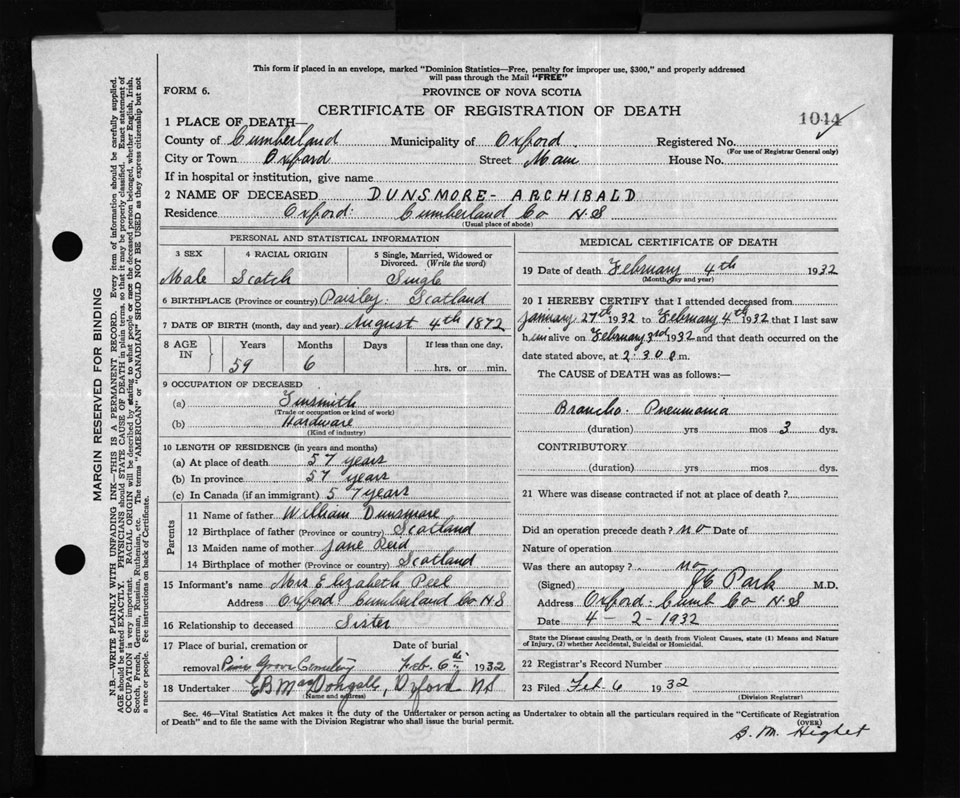 This form if placed in an envelope, marked "Dominion Statistics—Free, penalty for improper use, $300," and properly addressed
will pass through the Mail "FREE"
FORM 6.
PROVINCE OF NOVA SCOTIA
CERTIFICATE OF REGISTRATION OF DEATH
1044
1 PLACE OF DEATH—
County of Cumberland Municipality of Oxford. Registered No.
(For use of Registrar General only)
City or Town Oxford Street Main House No.
If in hospital or institution, give name
2 NAME OF DECEASED DUNSMORE- ARCHIBALD
Residence Oxford: Cumberland Co N.S
(Usual place of abode)
PERSONAL AND STATISTICAL INFORMATION
3 SEX 4 RACIAL ORIGIN 5 Single, Married, Widowed or
Divorced. (Write the word)
Male Scotch Single
6 BIRTHPLACE (Province or country) Paisley. Scotland
7 DATE OF BIRTH (month, day and year) August 4th 1872
8 AGE IN Years Months Days If less than one day.
59 6 hrs. or min.
9 OCCUPATION OF DECEASED
(a) Tinsmith
(Trade or occupation or kind of work)
(b) Hardware
(Kind of industry)
10 LENGTH OF RESIDENCE (in years and months)
(a) At place of death 57 years
(b) In province 57 years
(c) In Canada (if an immigrant) 57 years
Parents
11 Name of father William Dunsmore
12 Birthplace of father (Province or country) Scotland
13 Maiden name of mother Jane Reid
14 Birthplace of mother (Province or country) Scotland
15 Informant's name Mrs Elizabeth Peel
Address Oxford: Cumberland Co. N.S
16 Relationship to deceased Sister
17 Place of burial, cremation or Date of burial
removal Pine Grove Cemetery Feb. 6th 1932
18 Undertaker E B MacDougall, Oxford NS
(Name and address)
MEDICAL CERTIFICATE OF DEATH
19 Date of death February 4th 1932
(Month, day and year)
20 I HEREBY CERTIFY that I attended deceased from
January 27th 1932 to February 4th 1932 that I last saw
him alive on February 3rd 1932 and that death occurred on the
date stated above, at 2:30 m.
The CAUSE of DEATH was as follows:—
Broncho. Pneumonia
(duration) yrs mos 3 dys.
CONTRIBUTORY
(duration) yrs mos dys.
21 Where was disease contracted if not at place of death?
Did an operation precede death? no Date of
Nature of operation
Was there an autopsy? no
(Signed) Park M.D.
Address Oxford: Cumb Co N.S
4 - 2 - 1932
State the Disease causing Death, or in death from Violent Causes, state (1) Means and Nature
of Injury, (2) whether Accidental, Suicidal or Homicidal.
22 Registrar's Record Number
23 Filed Feb. 6 1932
(Division Registrar)
Sec. 46—Vital Statistics Act makes it the duty of the Undertaker or person acting as Undertaker to obtain all the particulars required in the "Certificate of Registration
of Death" and to file the same with the Division Registrar who shall issue the burial permit.
(OVER)
MARGIN RESERVED FOR BINDING
N.B.—WRITE PLAINLY WITH UNFADING INK—THIS IS A PERMANENT RECORD. Every item of information should be carefully supplied.
AGE should be stated EXACTLY. PHYSICIANS should STATE CAUSE OF DEATH in plain terms, so that it may be properly classified. Exact statement of
OCCUPATION is very important. RACIAL ORIGIN will be described by stating to what people or race the deceased person belonged, whether English, Irish,
Scotch, French, German, Russian, Ruthenian, etc. The terms "AMERICAN" or "CANADIAN" SHOULD NOT BE USED as they express citizenship but not
a race or people. See instructions on back of Certificate.